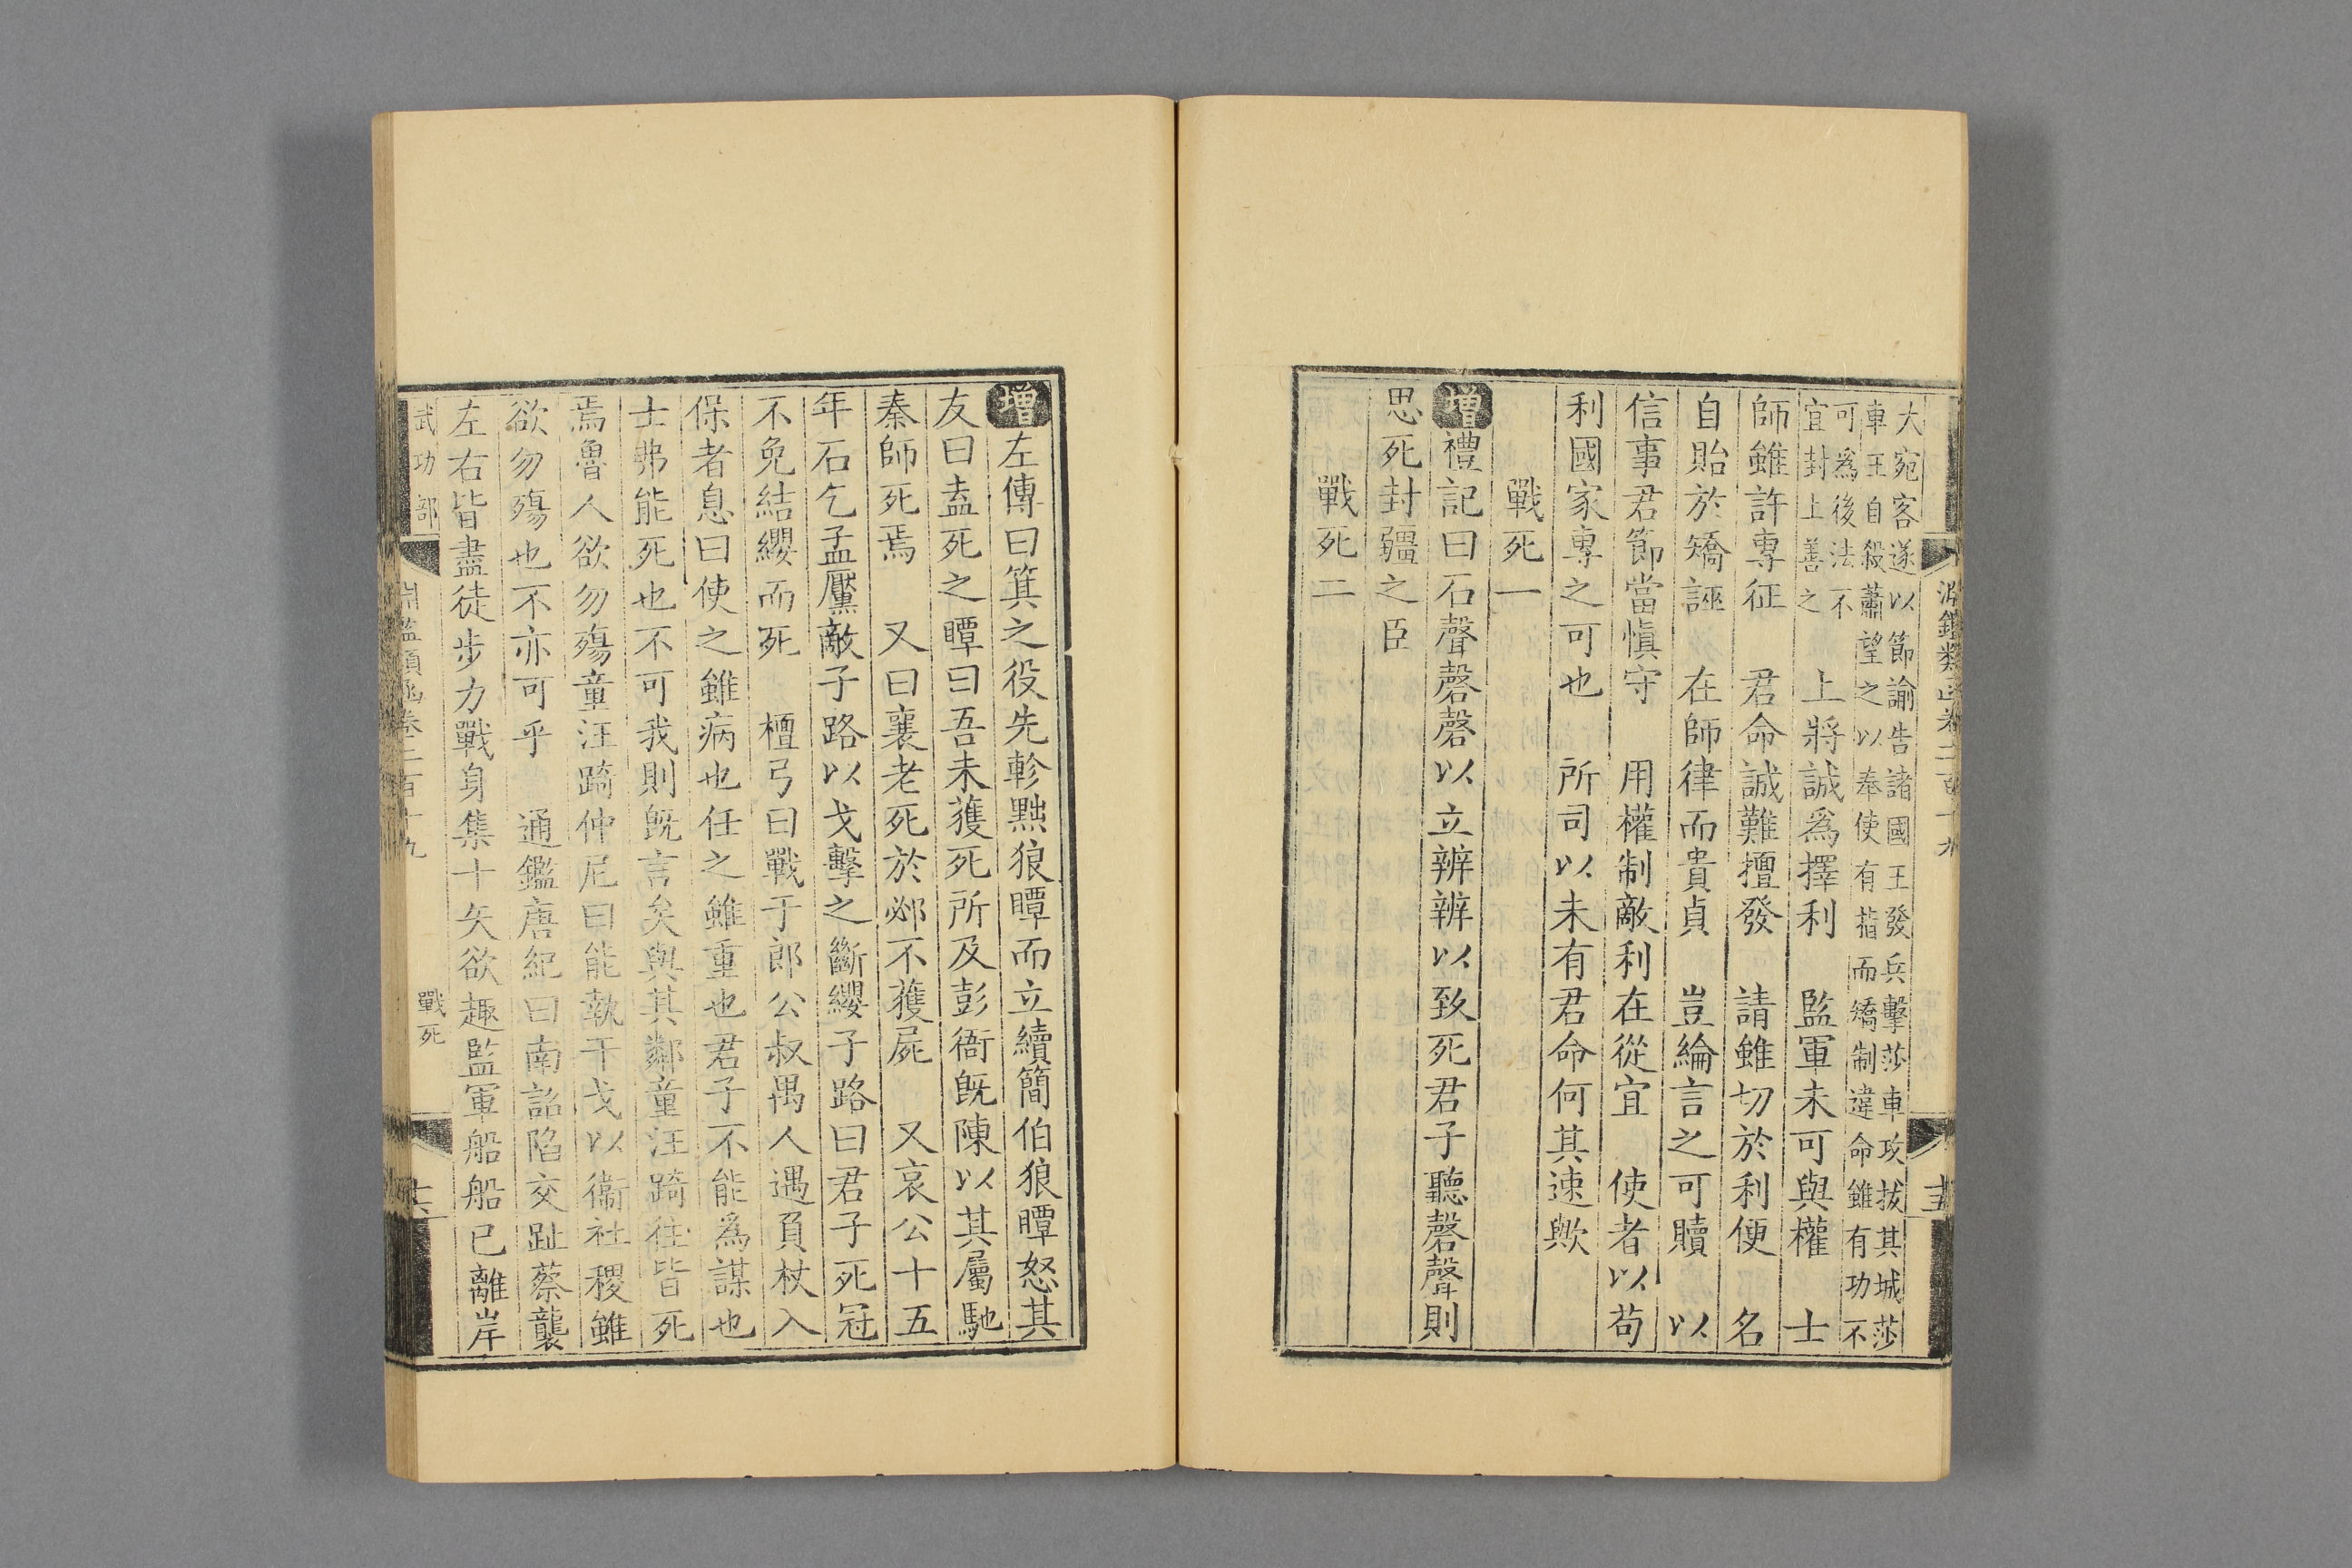 淵鑑類函卷二百十九
十五
大宛客遂以節諭告諸國王發兵擊莎車攻拔其城莎
車王自殺蕭望之以奉使有指而矯制違命雖有功不
可爲後法不
宜封上善之
上將誠爲擇利　監軍未可與權　士
師雖許專征　君命誠難擅發　請雖切於利便　名
自貽於矯誣　在師律而貴貞　豈綸言之可贖　以
信事君節當愼守　用權制敵利在從宜　使者以苟
利國家專之可也　所司以未有君命何其速歟
戰死一
增禮記曰石聲磬磬以立辨辨以致死君子聽磬聲則
思死封疆之臣
戰死二
增左傳曰箕之役先軫黜狼瞫而立續簡伯狼瞫怒其
友曰盍死之瞫曰吾未獲死所及彭衙旣陳以其屬馳
秦師死焉　又曰襄老死於邲不獲屍　又哀公十五
年石乞孟黶敵子路以戈擊之斷纓子路曰君子死冠
不免結纓而死　檀弓曰戰于郎公叔禺人遇負杖入
保者息曰使之雖病也任之雖重也君子不能爲謀也
士弗能死也不可我則旣言矣與其鄰童汪踦往皆死
焉魯人欲勿殤童汪踦仲尼曰能執干戈以衞社稷雖
欲勿殤也不亦可乎　通鑑唐紀曰南詔陷交趾蔡襲
左右皆盡徒步力戰身集十矢欲趣監軍船船已離岸
武功部
淵鑑類函卷二百十九
戰死
十六